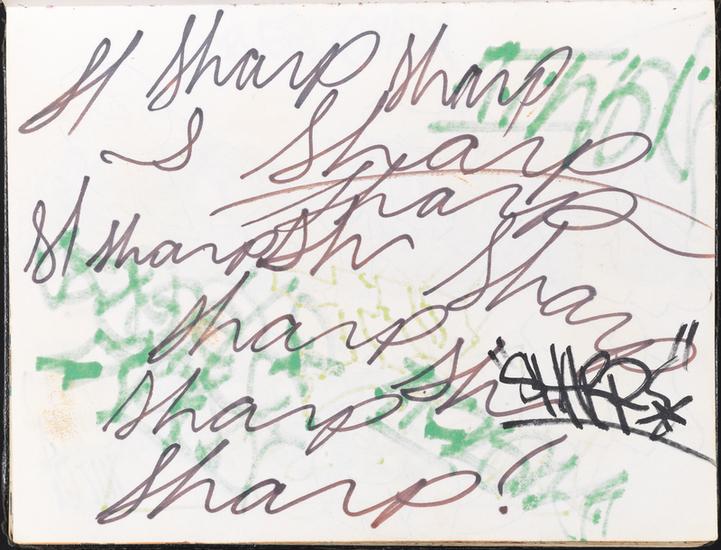 Sharp Sharp
S Sharp
Sharp
Sh Sharp Sh
Sharp
Sharp
Sh "SHARP"
Sharp
Sharp!